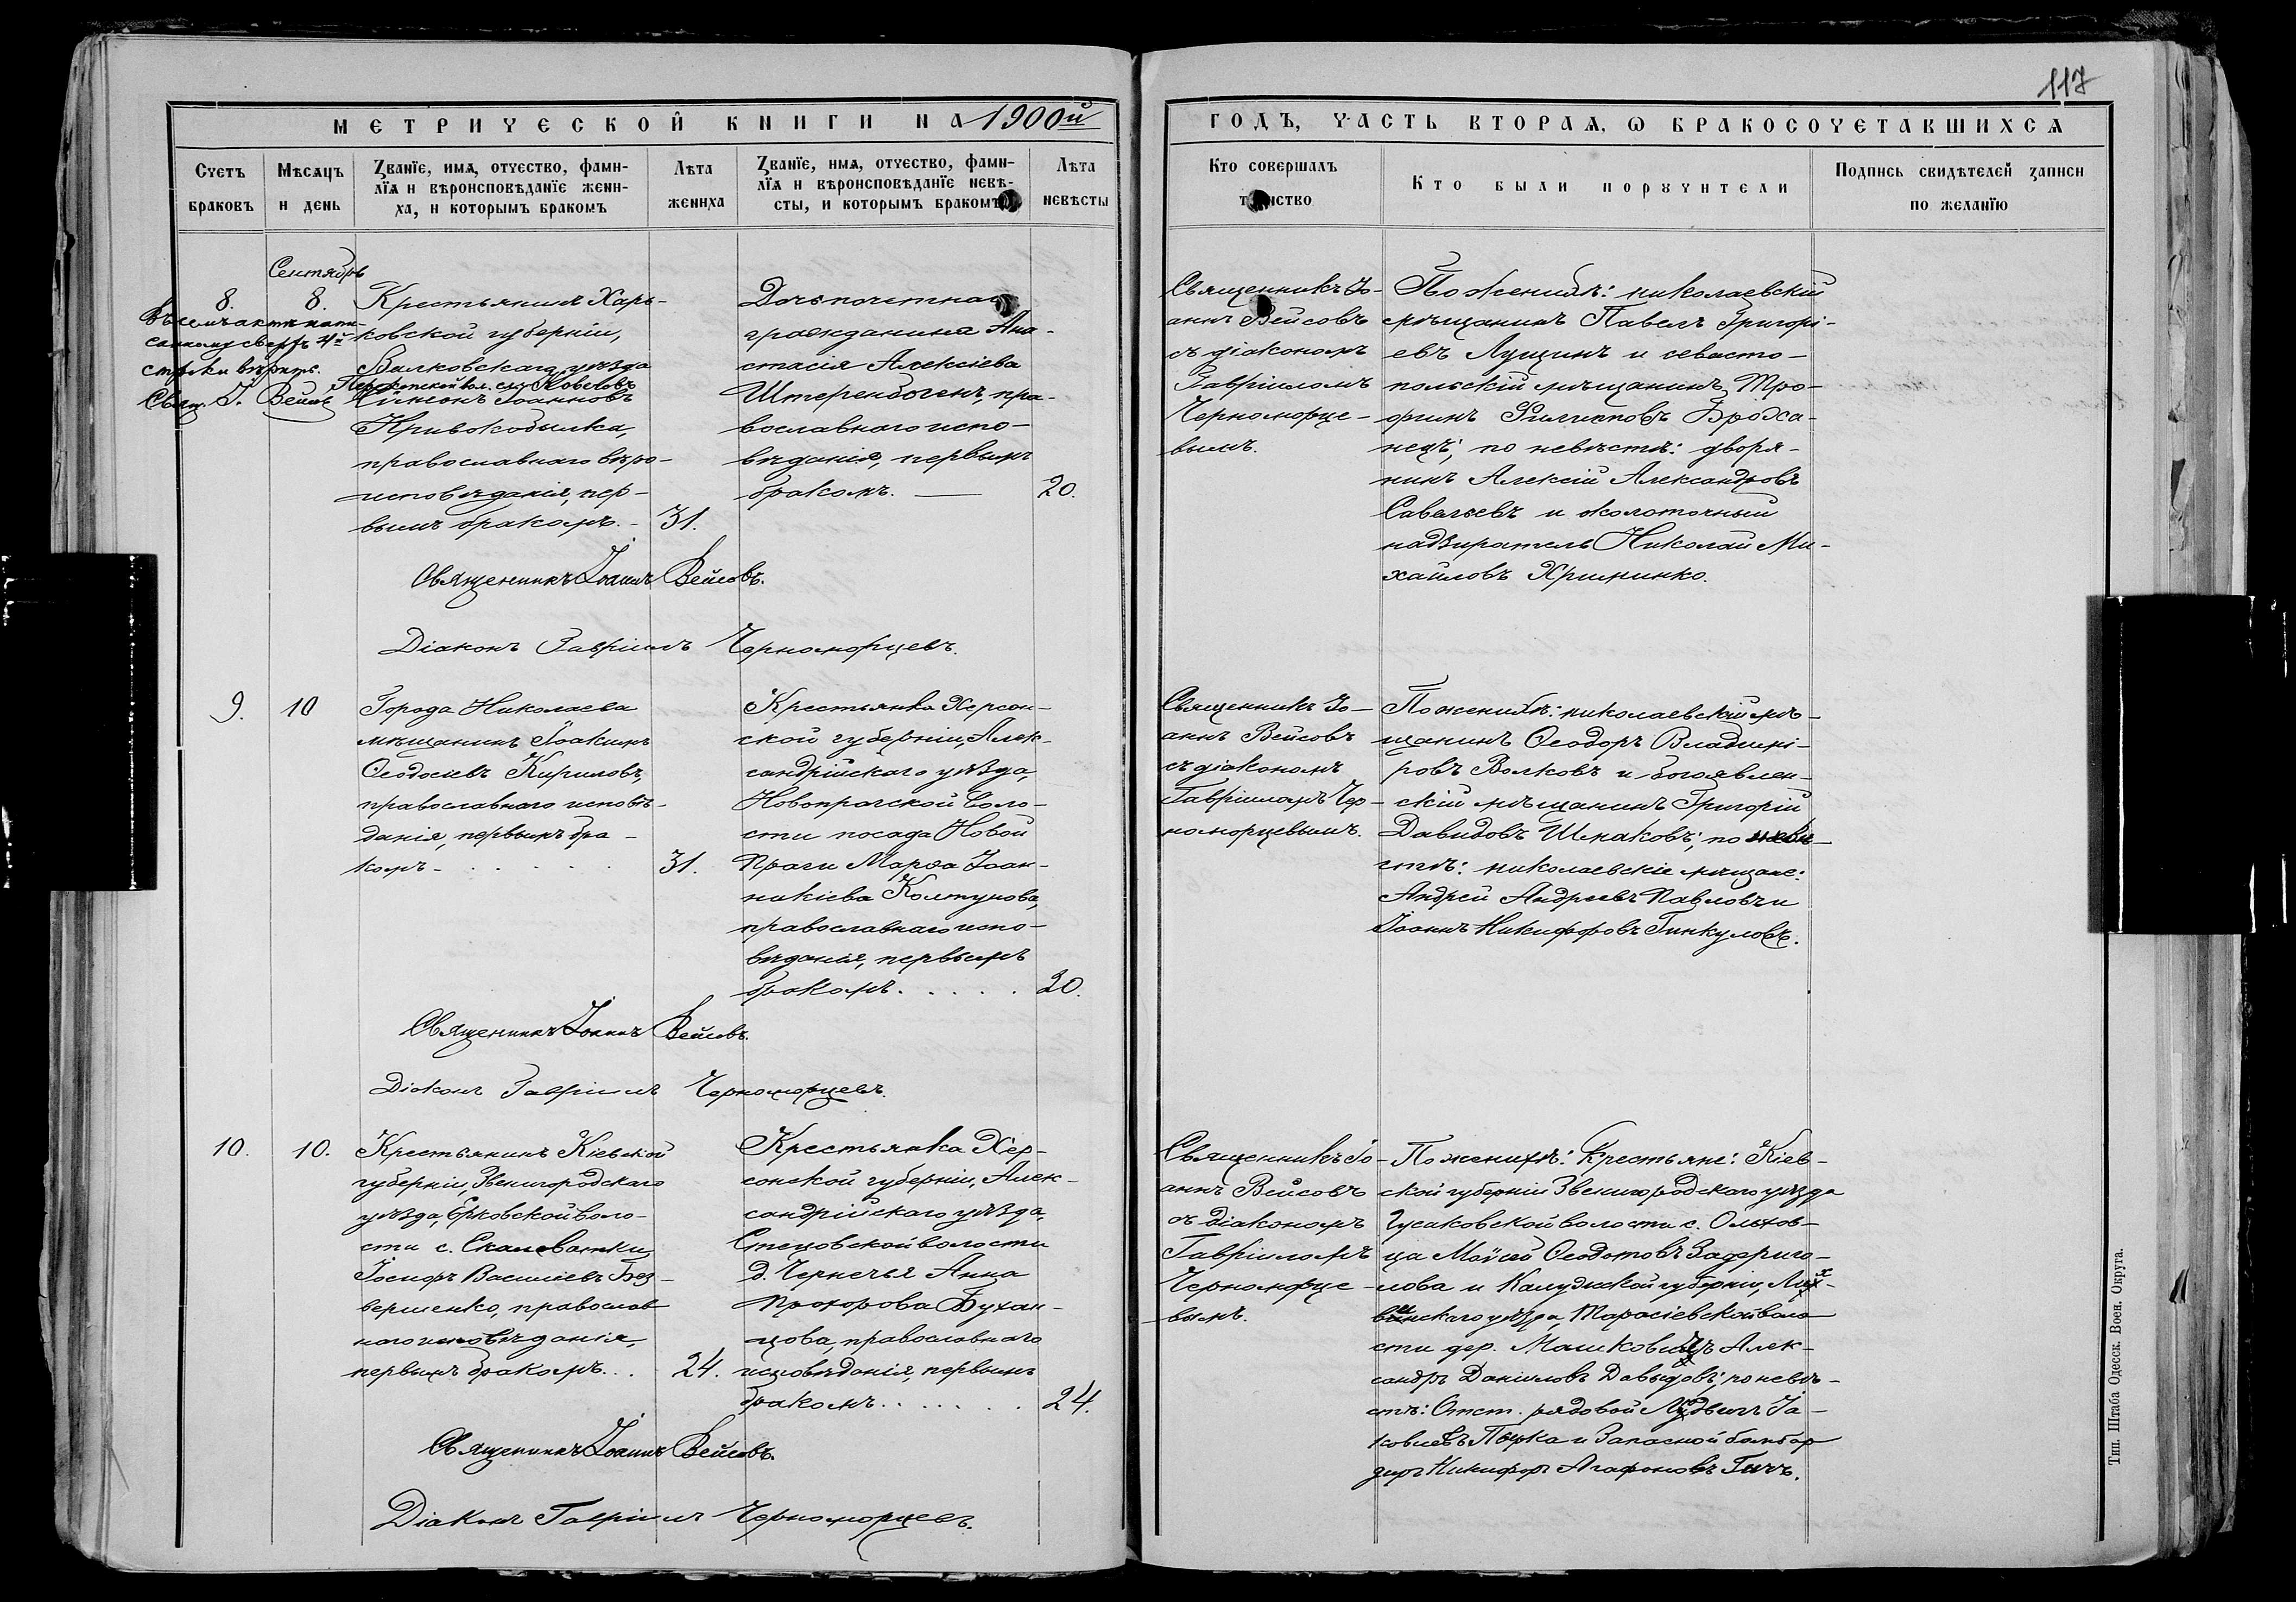 117
МЕТРИЧЕСКОЙ КНИГИ НА 1900й
ГОДЪ, ЧАСТЬ ВТОРАѦ, Ѡ БРАКОСОЧЕТАВШИХСѦ
Счетъ браковъ
Мѣсѧцъ и день
Званїе, имѧ, отчество, фами-
лїѧ и вѣроисповѣданїе жени-
ха, и которымъ бракомъ
Лѣта жениха
Званїе, имѧ, отчество, фами-
лїѧ и вѣроисповѣданїе невѣ-
сты, и которымъ бракомъ
Лѣта невѣсты
Кто совершалъ
Кто были порꙋчители
Подпись свидѣтелей записи
по желанїю
Сентябрь
8.
8.
Въ семъ актѣ напи-
санному сверхъ 4й
строки вѣрить.
Свящ. І. Вейсовъ
Крестьянинъ Харь-
ковской губерніи,
Валковскаго уѣзда
Сѵмеонъ Іоанновъ
Кривокобылка,
православнаго вѣро-
исповѣданія, пер-
вымъ бракомъ.-
31.
Дочь почетнаго
гражданина Ана-
стасія Алексіева
Штеренбогенъ, пра-
вославнаго испо-
вѣданія, первымъ
бракомъ.
20.
Священникъ Іо-
аннъ Вейсовъ
съ діакономъ
Гавріиломъ
Черноморце-
вымъ.
По женихѣ: николаевскій
мѣщанинъ Павелъ Григорі-
евъ Лущинъ и севасто-
польскій мѣщанинъ Тро-
фимъ Филипповъ Бродса-
нецъ; по невѣстѣ: дворя-
нинъ Алексій Александровъ
Савельевъ и околоточный
надзиратель Николай Ми-
хаиловъ
Священникъ Іоаннъ Вейсовъ.
Діаконъ Гавріилъ Черноморцевъ.
9.
10
Города Николаева
мѣщанинъ Іоакимъ
Ѳеодосіевъ Кириловъ,
православнаго исповѣ-
данія, первымъ бра-
комъ-
31.
Крестьянка Херсон-
ской губерніи, Алек-
сандрійскаго уѣзда,
Новопрагской воло-
сти посада Новой
Праги Марѳа Іоан-
никіева Колтунова,
православнаго испо-
вѣданія, первымъ
бракомъ.
20.
Священникъ Іо-
аннъ Вейсовъ
съ діакономъ
Гавріиломъ Чер-
номорцевымъ.
По женихѣ: николаевскій мѣ-
щанинъ Ѳеодоръ Владимі-
ровъ Волковъ и богоявлен-
скій мѣщанинъ Григорій
Давидовъ Шпаковъ; по невѣ-
стѣ: николаевскіе мѣщане:
Андрей Андреевъ Павловъ и
Іоаннъ Никифоровъ Гинкуловъ.
Священникъ Іоаннъ Вейсовъ.
Діаконъ Гавріилъ Черноморцевъ.
10.
10.
Крестьянинъ Кіевской
губерніи, Звенигородскаго
уѣзда, Ерковской воло-
сти с. Скалеватки
Іосифъ Василіевъ Без-
вершенко, православ
наго исповѣданія,
первымъ бракомъ...
24.
Крестьянка Хер-
сонской губерніи, Алек-
сандрійскаго уѣзда,
Стецовской волости
д. Чернечья Анна
Прохорова Бухан-
цова, православнаго
исповѣданія, первымъ
бракомъ.
24.
Священникъ Іо-
аннъ Вейсовъ
съ діакономъ
Гавріиломъ
Черноморце-
вымъ.
По женихѣ: Крестьяне: Кіев-
ской губерніи Звенигородскаго уѣзда
Гусаковской волости с. Ольхов-
ца Моѵсей Ѳеодотовъ
и Калужской губерніи, Лих-
винскаго уѣзда, волo
сти дер. Алек-
сандръ Даніиловъ Давыдовъ; по невѣ-
стѣ: Отст. рядовой Людвигъ Іа-
ковлевъ и Запасной бомбар
диръ Никифоръ Агафоновъ
Священникъ Іоаннъ Вейсовъ.
Діаконъ Гавріилъ Черноморцевъ.
Тип. Штаба Одесск. Воен. Округа.